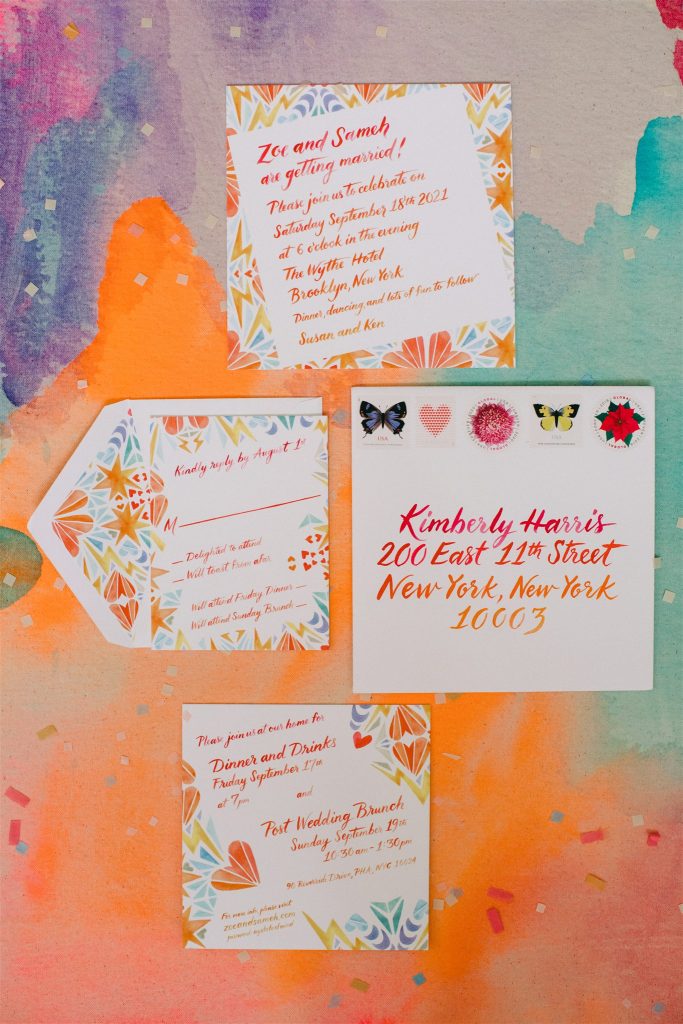 Zoe and Sameh
are getting married!
Please join us to celebrate on
Saturday September 18th 2021
at 6 o'clock in the evening
The Wythe Hotel
Brooklyn, New York
Dinner, dancing and lots of fun to follow
Susan and Ken
Kindly reply by August 1st
M
Delighted to attend
Will toast from afar
Will attend Friday Dinner
Will attend Sunday Brunch
USA
GLOBAL
USA
GLOBAL
Kimberly Harris
200 East 11th Street
New York, New York
10003
Please join us at our home for
Dinner and Drinks
Friday September 17th
at 7pm
and
Post Wedding Brunch
Sunday September 19th
10:30 am - 1:30pm
90 Riverside Drive, PHA, NYC 10024
For more info, please visit
zoeandsameh.com